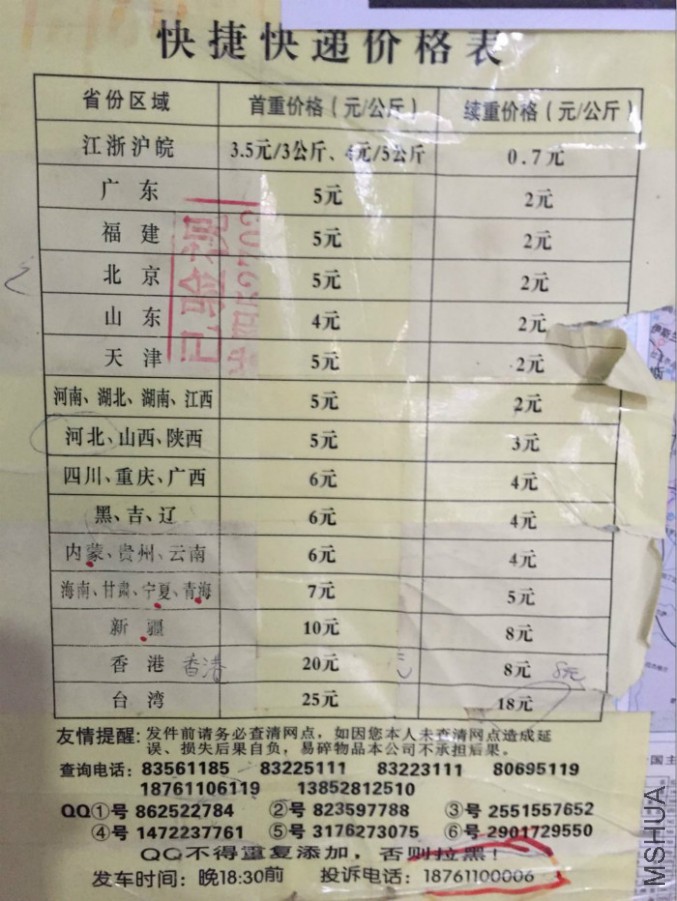 快捷快递价格表
省份区域 首重价格(元/公斤) 续重价格(元/公斤)
江浙沪皖 3.5元/3公斤、4元/5公斤 0.7元
广东 5元 2元
福建 5元 2元
北京 5元 2元
山东 4元 2元
天津 5元 2元
河南、湖北、湖南、江西 5元 2元
河北、山西、陕西 5元 3元
四川、重庆、广西 6元 4元
黑、吉、辽 6元 4元
内蒙、贵州、云南 6元 4元
海南、甘肃、宁夏、青海 7元 5元
新疆 10元 8元
香港 香港 20元 8元 8元
台湾 25元 18元
已验视
友情提醒:发件前请务必查清网点，如因您本人未查清网点造成延
误、损失后果自负，易碎物品本公司不承担后果。
查询电话：83561185 83225111 83223111 80695119
18761106119 13852812510
QQ①号 862522784 ②号 823597788 ③号 2551557652
④号 1472237761 ⑤号 3176273075 ⑥号 2901729550
QQ不得重复添加，否则拉黑！
发车时间：晚18:30前 投诉电话：18761100006
MSHUA